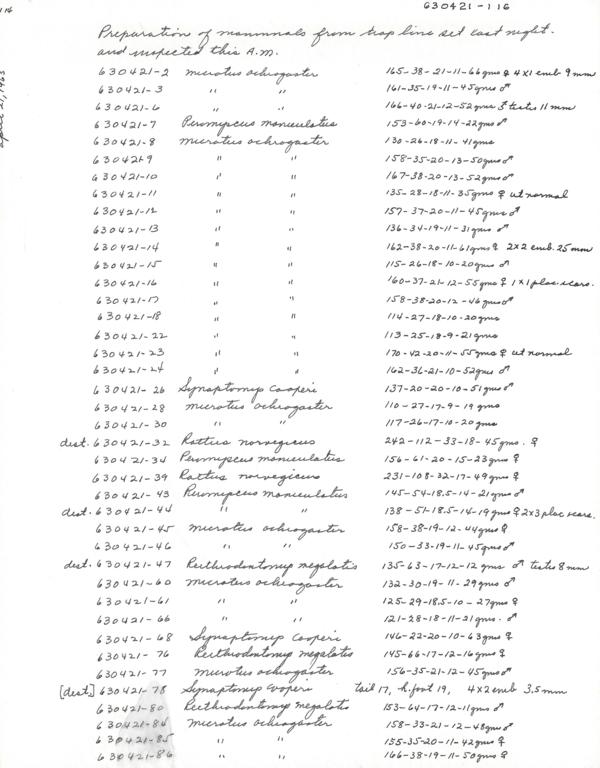 116
630421-116
april 21, 1963
Preparation of mammals from trap line set last night.
and inspected this A.M.
630421-2 Microtus ochrogaster 165-38-21-11-66gms ♀ 4X1 emb 9mm
630421-3 " " 161-35-19-11-45gms ♂
630421-6 " " 166-40-21-12-52gms ♂ testes 11mm
630421-7 Peromyscus maniculatus 153-60-19-14-22gms ♂
630421-8 Microtus ochrogaster 130-26-18-11-41gms
630421-9 " " 158-35-20-13-50gms ♂
630421-10 " " 167-38-20-13-52gms ♂
630421-11 " " 135-28-18-11-35gms ♀ ut normal
630421-12 " " 157-37-20-11-45gms ♂
630421-13 " " 136-34-19-11-31gms ♂
630421-14 " " 162-38-20-11-61gms ♀ 2X2 emb. 25mm
630421-15 " " 115-26-18-10-20gms ♂
630421-16 " " 160-37-21-12-55gms ♀ 1X1 plac. scars.
630421-17 " " 158-38-20-12-46gms ♂
630421-18 " " 114-27-18-10-20gms
630421-22 " " 113-25-18-9-21gms
630421-23 " " 170-42-20-11-55gms ♀ ut normal
630421-24 " " 162-36-21-10-52gms ♂
630421-26 Synaptomys cooperi 137-20-20-10-51gms ♂
630421-28 Microtus ochrogaster 110-27-17-9-19gms
630421-30 " " 117-26-17-10-20gms
dest. 630421-32 Rattus norvegicus 242-112-33-18-45gms. ♀
630421-34 Peromyscus maniculatus 156-61-20-15-23gms ♀
630421-39 Rattus norvegicus 231-108-32-17-49gms ♀
630421-43 Peromyscus maniculatus 145-54-18.5-14-21gms ♂
dest. 630421-44 " " 138-51-18.5-14-19gms ♀ 2X3 plac scars.
630421-45 Microtus ochrogaster 158-38-19-12-44gms ♀
630421-46 " " 150-33-19-11-45gms ♂
dest. 630421-47 Reithrodontomys megalotis 135-63-17-12-12gms ♂ testes 8mm
630421-60 Microtus ochrogaster 132-30-19-11-29gms ♂
630421-61 " " 125-29-18.5-10-27gms ♀
630421-66 " " 121-28-18-11-21gms. ♂
630421-68 Synaptomys cooperi 146-22-20-10-63gms ♀
630421-76 Reithrodontomys megalotis 145-66-17-12-16gms ♀
630421-77 Microtus ochrogaster 156-35-21-12-45gms ♂
[dest] 630421-78 Synaptomys cooperi tail 17, h.foot 19, 4X2 emb 3.5mm
630421-80 Reithrodontomys megalotis 153-64-17-12-11gms ♂
630421-84 Microtus ochrogaster 158-33-21-12-48gms ♂
630421-85 " " 155-35-20-11-42gms ♀
630421-86 " " 166-38-19-11-50gms ♀